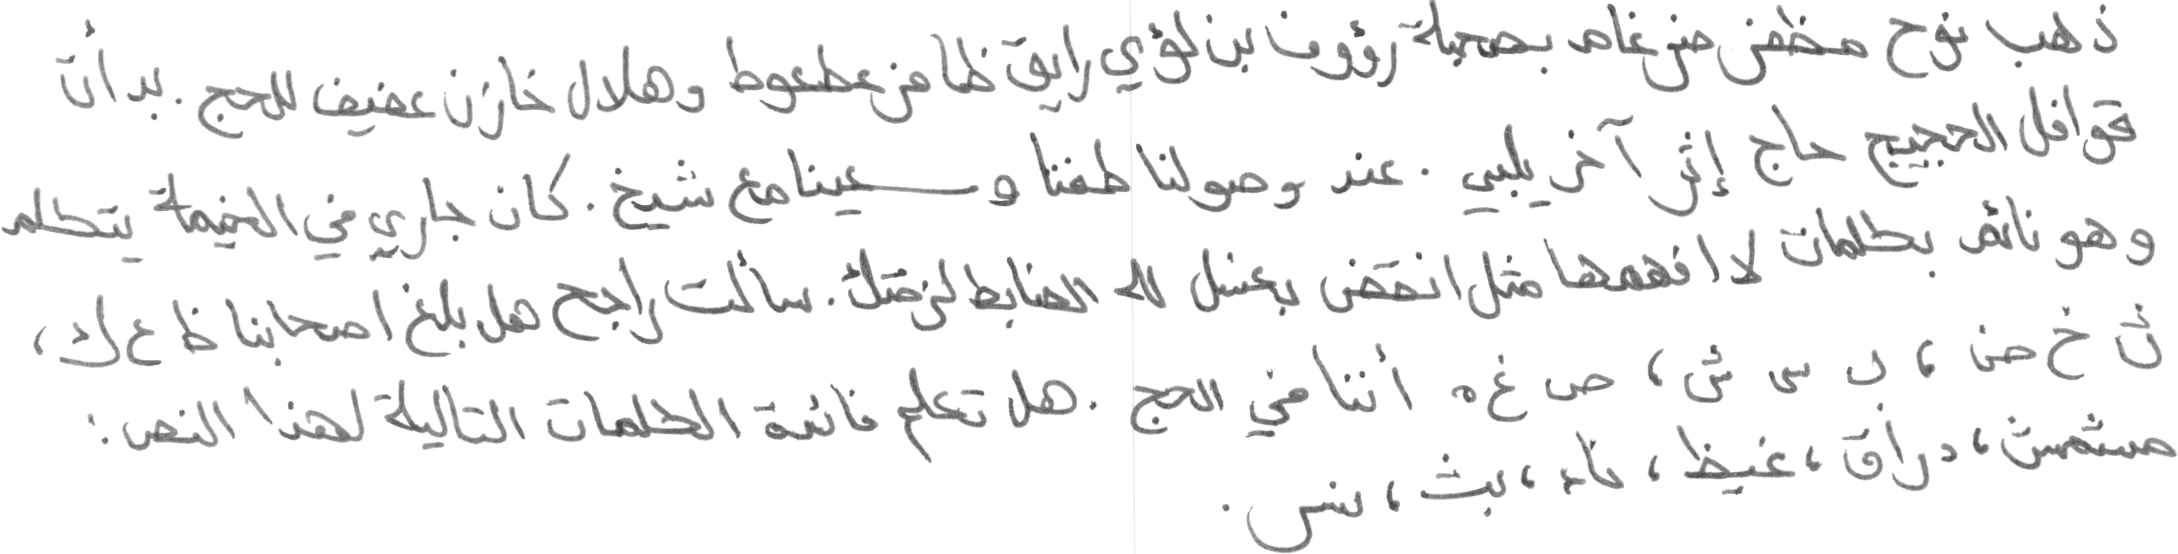 ذهب نوح مظفر ضرغام بصحبة رؤوف بن لؤي رايق ظافر عطعوط وهلال خازن عفيف للحج . بدأت
قوافل الحجيج حاج إثر آخر يلبي . عند وصولنا طفنا وسعينا مع شيخ . كان جاري في الخيمة يتكلم
وهو نائم بكلمات لا افهمها مثل انقض بعسل لله الضابط لزمتك . سألت راجح هل بلغ اصحابنا ظ ع ك ،
ث خ ض ، ر س ش ، ص غ ه أننا في الحج . هل تعلم فائدة الكلمات التالية لهذا النص :
مشمش ، دراق ، غيظ ، ناء ، بث ، بس .